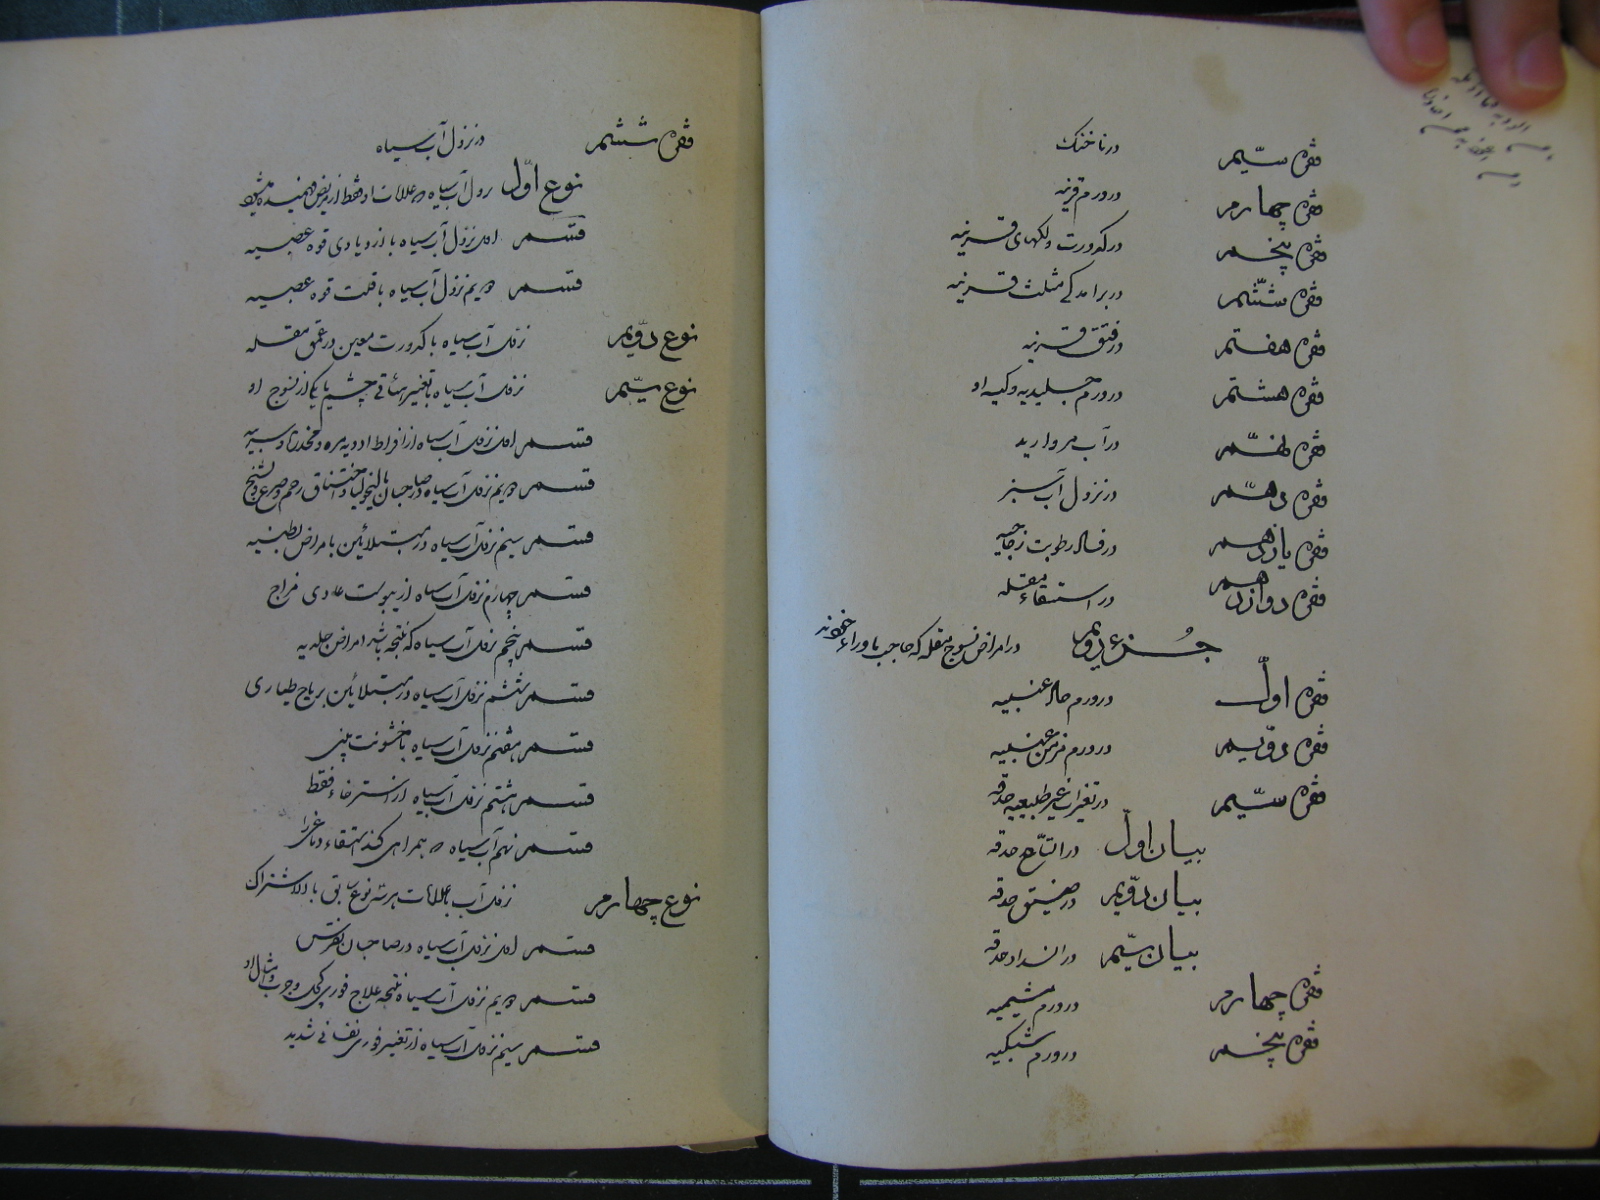 فقره سیّم در ناخنک
فقره چهارم در ورم قرنیه
فقره پنجم در کدورت و لکهای قرنیه
فقره ششم در برامدکی مثلث قرنیه
فقره هفتم در فتق قرنیه
فقره هشتم در ورم جلیدیه و کیسه او
فقره نهم در آب مروارید
فقره دهم در نزول آب سبز
فقره یازدهم در فساد رطوبت زجاجیه
فقره دوازدهم در استسقاء مقله
جزء دویم در امراض نسوج مقله که حاجب باوراء خودند
فقره اوّل در ورم حاد عنبیه
فقره دویم در ورم مزمن عنبیه
فقره سیّم در تغییرات غیر طبیعیه حدقه
بیان اوّل در اتساع حدقه
بیان دویم در ضیق حدقه
بیان سیّم در انسداد حدقه
فقره چهارم در ورم مشیمیه
فقره پنجم در ورم شبکیه
فقره ششم در نزول آب سیاه
نوع اوّل نزول آب سیاه که علامات او فقط از مریض فهمیده میشود
قسم اول نزول آب سیاه با ازدیادی قوه عصبیه
قسم دویم نزول آب سیاه با قلت قوه عصبیه
نوع دویم نزول آب سیاه با کدورت معین در عمق مقله
نوع سیّم نزول آب سیاه با تغییر هیأتی چشم یا یکی از نسوج او
قسم اول نزول آب سیاه از افراط ادویه مره و مخدره و
قسم دویم نزول آب سیاه در صاحبان مالیخولیا و اختناق رحم و صرع و تشنج
قسم سیم نزول آب سیاه در مبتلائین بامراض بطنیه
قسم چهارم نزول آب سیاه از یبوست عادی مزاج
قسم پنجم نزول آب سیاه که نتیجه باشد امراض جلدیه
قسم ششم نزول آب سیاه در مبتلائین بریاح طیاری
قسم هفتم نزول آب سیاه با خشونت پلپی
قسم هشتم نزول آب سیاه از استرخاء فقط
قسم نهم آب سیاه که همراهی کند استسقاء دماغی را
نوع چهارم نزول آب با علامات هر سه نوع سابق بالاشتراک
قسم اول نزول آب سیاه در صاحبان نقرس
قسم دویم نزول آب سیاه نتیجه علاج فوری کچلی و جرب و امثال او
قسم سیم نزول آب سیاه از تغییر فوری نفسانی شدید